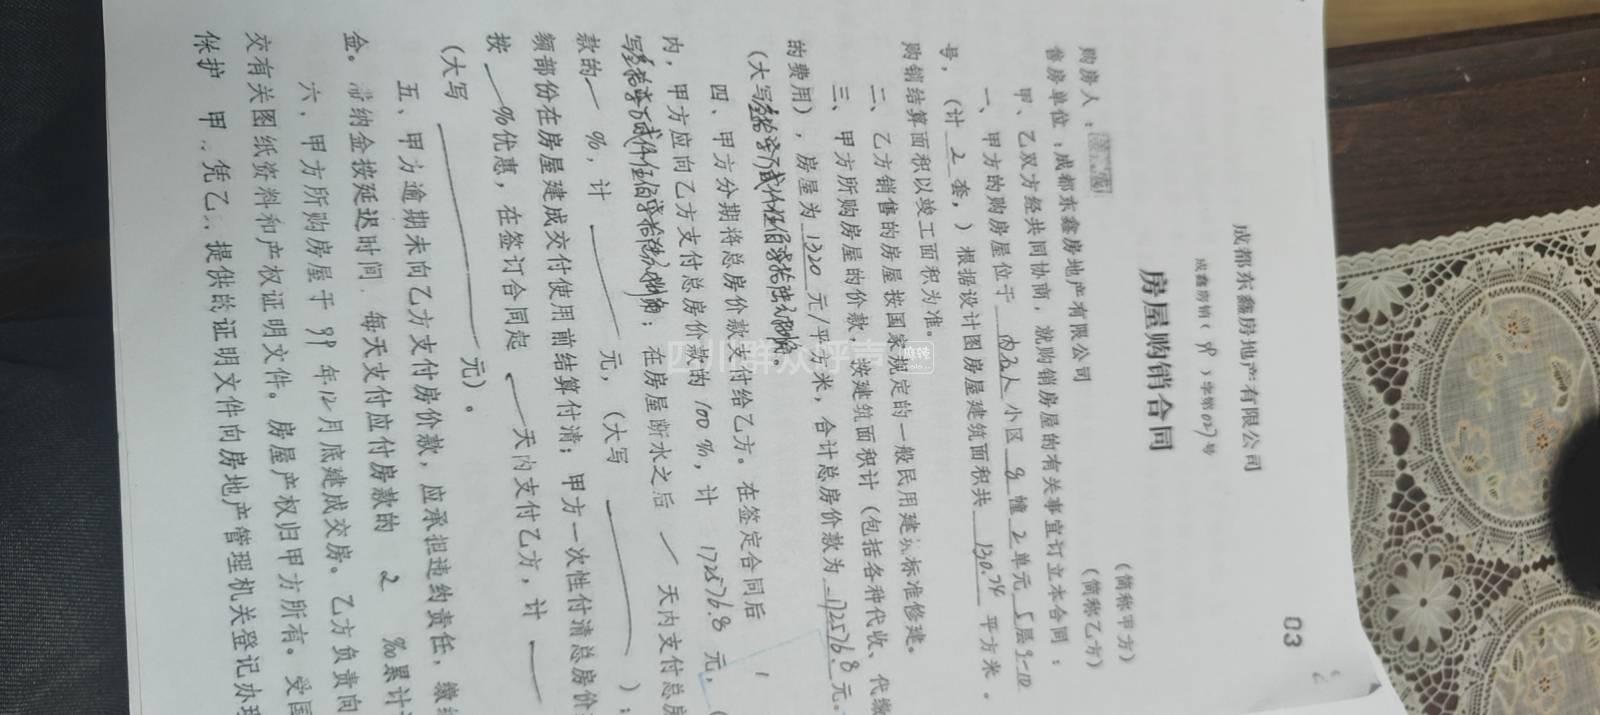 03
成都东鑫房地产有限公司
成鑫房销(99)字第027号
房屋购销合同
购房人:
(简称甲方)
售房单位:成都东鑫房地产有限公司
(简称乙方)
甲、乙双方经共同协商,就购销房屋的有关事宜订立本合同:
一、甲方的购房屋位于 人小区 8 幢 2 单元 5层9-10
号,(计 2 套,)根据设计图房屋建筑面积共 130.74 平方米,
购销结算面积以竣工面积为准。
二、乙方销售的房屋按国家规定的一般民用建 标准修建。
三、甲方所购房屋的价款,按建筑面积计(包括各种代收、代缴
的费用),房屋为 1320 元/平方米,合计总房价款为 172576.8 元。
(大写
四、甲方分期将总房价款支付给乙方。在签定合同后
内,甲方应向乙方支付总房价款的 100 %,计 172576.8 元,(
写 ;在房屋断水之后 天内支付总房
款的 %,计 元,(大写 );
额部份在房屋建成交付使用前结算付清;甲方一次性付清总房价
按 %优惠,在签订合同起 天内支付乙方,计
(大写 元)。
五、甲方逾期未向乙方支付房价款,应承担违约责任,缴
金。滞纳金按延迟时间,每天支付应付房款的 2 %累计
六、甲方所购房屋于 99 年12月底建成交房。乙方负责向
交有关图纸资料和产权证明文件。房屋产权归甲方所有。受国
保护 甲 凭乙 提供的证明文件向房地产管理机关登记办理
四川群众呼声